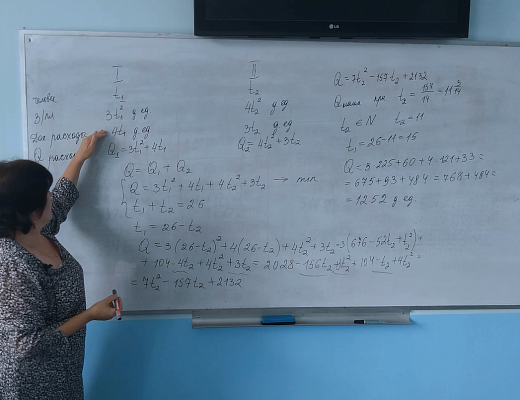 LG
I
t₁
3t₁² д ед
4t₁ д ед
Q₁ = 3t₁² + 4t₁
II
t₂
4t₂² д ед
3t₂ д ед
Q₂ = 4t₂² + 3t₂
З/пл
Доп расходы
Q = Q₁ + Q₂
{ Q = 3t₁² + 4t₁ + 4t₂² + 3t₂ → min
t₁ + t₂ = 26
t₁ = 26 - t₂
Q = 3(26-t₂)² + 4(26-t₂) + 4t₂² + 3t₂ = 3(676 - 52t₂ + t₂²) +
+ 104 - 4t₂ + 4t₂² + 3t₂ = 2028 - 156t₂ + 3t₂² + 104 - t₂ + 4t₂² =
= 7t₂² - 157t₂ + 2132
Q = 7t₂² - 157t₂ + 2132
Qнаим при t₂ = 157/14 = 11 3/14
t₂ ∈ N t₂ = 11
t₁ = 26 - 11 = 15
Q = 3·225 + 60 + 4·121 + 33 =
= 675 + 93 + 484 = 768 + 484 =
= 1252 д ед.